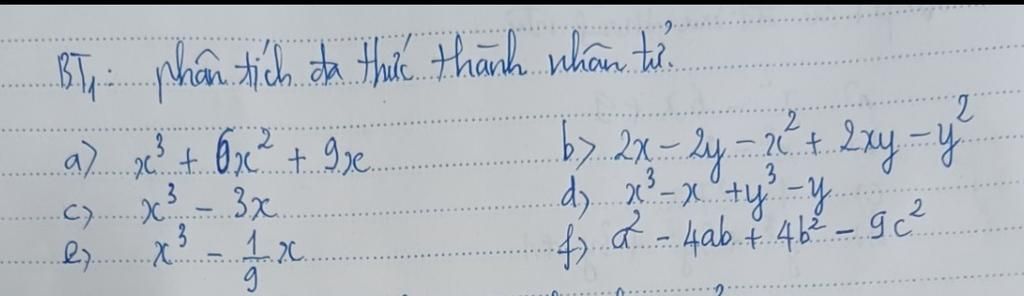 BT₁: phân tích đa thức thành nhân tử.
a) x³ + 6x² + 9x b) 2x - 2y - x² + 2xy - y²
c) x³ - 3x d) x³ - x + y³ - y
e) x³ - 1/9 x f) a² - 4ab + 4b² - 9c²